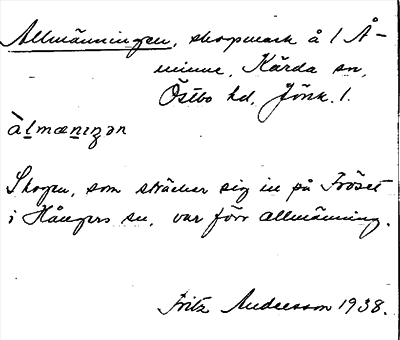 Allmänningen, skogsmark å 1 Å-
minne, Kärda sn,
Östbo hd, Jönk. l.
àlmæniŋən
Skogen, som sträcker sig in på Fröset
i Hångers sn, var förr allmänning.
Fritz Andersson 1938.